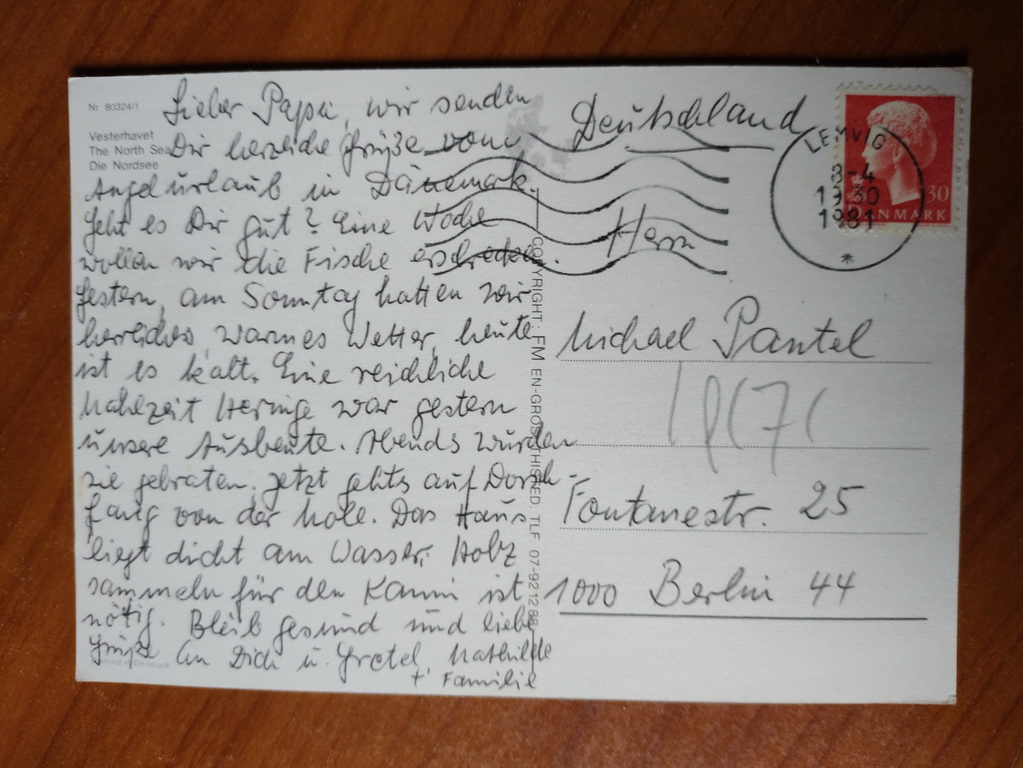 Nr. 80324/1
Vesterhavet
The North Sea
Die Nordsee
Lieber Papa, wir senden
Dir herzliche Grüße vom
Angelurlaub in Dänemark.
Geht es Dir gut? Eine Woche
wollen wir die Fische erschrecken.
Gestern, am Sonntag hatten wir
herrliches, warmes Wetter, heute
ist es kalt. Eine reichliche
Mahlzeit Heringe war gestern
unsere Ausbeute. Abends wurden
sie gebraten. Jetzt gehts auf Dorsch-
fang von der Mole. Das Haus
liegt dicht am Wasser. Holz
sammeln für den Kamin ist
nötig. Bleib gesund und liebe
Grüße an Dich u. Gretel, Mathilde
+ Familie
COPYRIGHT: FM EN-GROS, THISTED. TLF. 07-92
Deutschland
LEMVIG
8-4
1981
30
DANMARK
Herrn
Michael Pantel
Fontanestr. 25
1000 Berlin 44